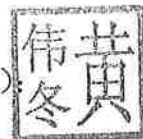 黄伟冬